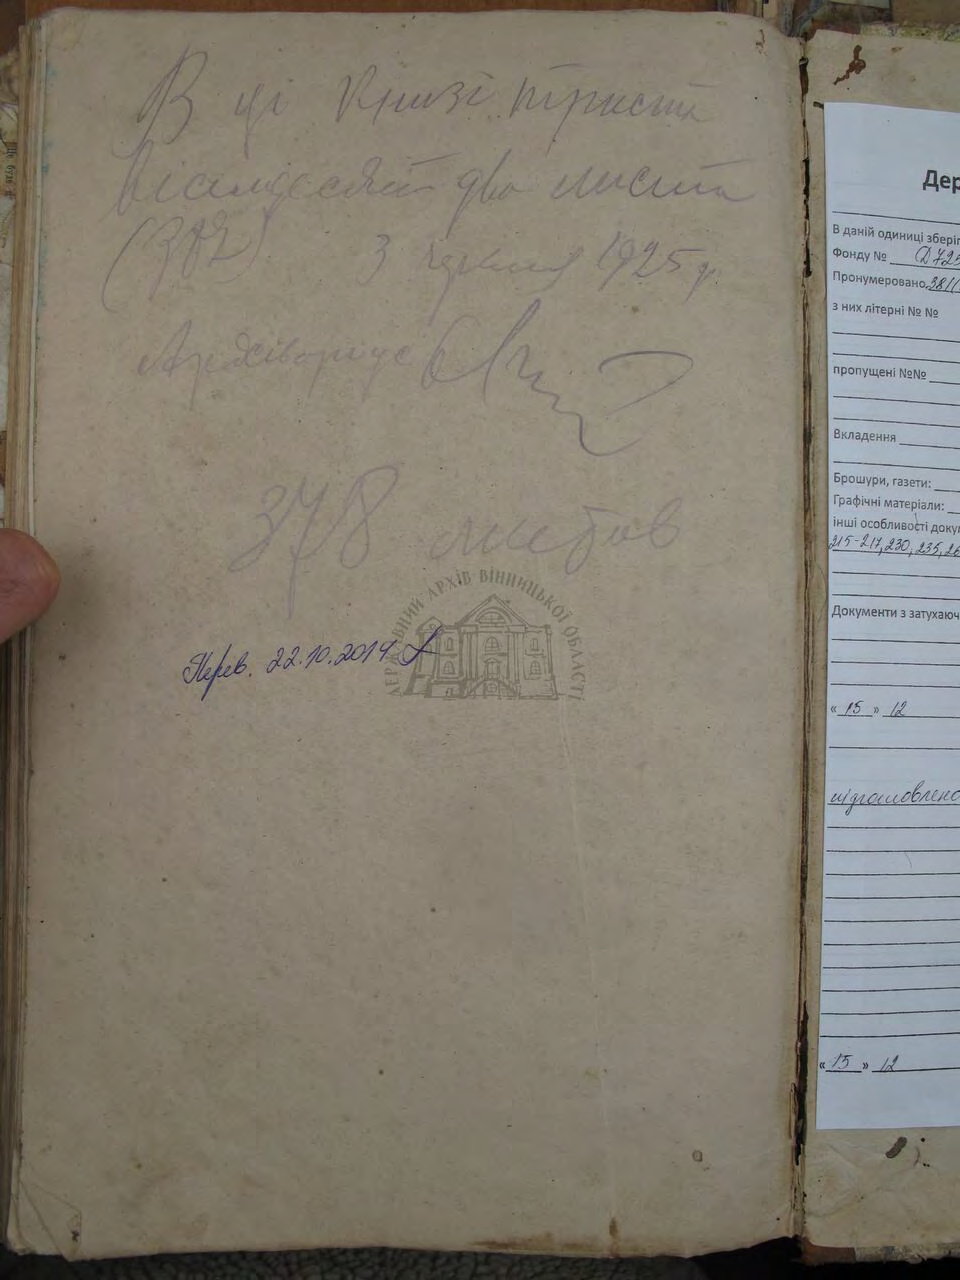 В ці Книзі триста
вісімдесят два листа
(382) 3 червня 1925 р.
Архіваріус
378 листов
ДЕРЖАВНИЙ АРХІВ ВІННИЦЬКОЇ ОБЛАСТІ
Перев. 22.10.2014
Дер
В даній одиниці зберіг
Фонду № Д725
Пронумеровано 381(
з них літерні № №
пропущені №№
Вкладення
Брошури, газети:
Графічні матеріали:
інші особливості докум
215-217, 230, 235, 26
Документи з затухаюч
« 15 » 12
підготовлено
« 15 » 12